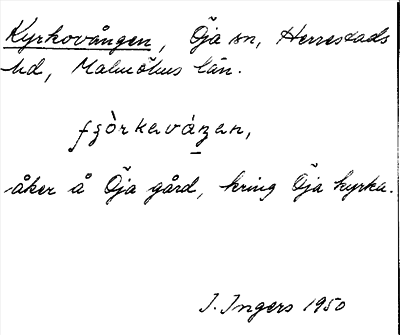 Kyrkovången, Öja sn, Herrestads
hd, Malmöhus län.
fʒòrkavánan,
åker å Öja gård, kring Öja kyrka.
I. Ingers 1950